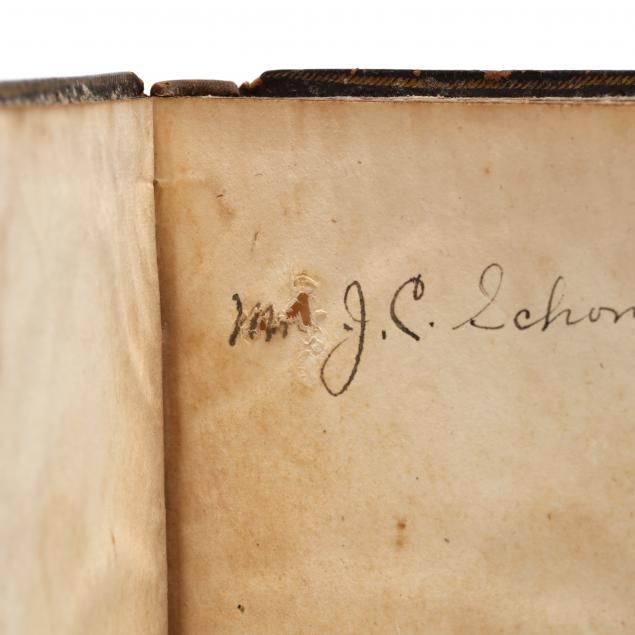 Mr J. C. Schom